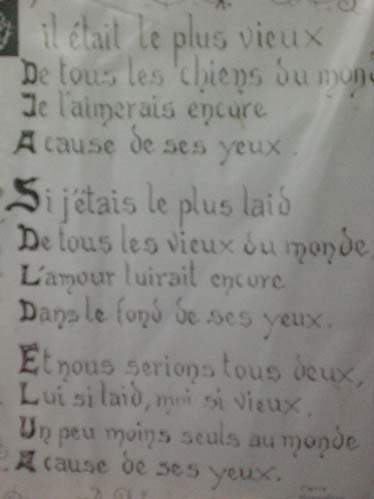 il était le plus vieux
De tous les chiens du mon
Je l'aimerais encore
A cause de ses yeux.
Si j'étais le plus laid
De tous les vieux du monde,
L'amour luirait encore
Dans le fond de ses yeux.
Et nous serions tous deux,
Lui si laid, moi si vieux,
Un peu moins seuls au monde
A cause de ses yeux.